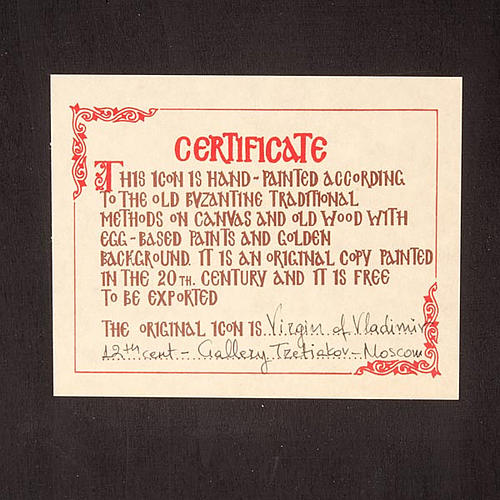 CERTIFICATE
THIS ICON IS HAND-PAINTED ACCORDING
TO THE OLD BYZANTINE TRADITIONAL
METHODS ON CANVAS AND OLD WOOD WITH
EGG-BASED PAINTS AND GOLDEN
BACKGROUND. IT IS AN ORIGINAL COPY PAINTED
IN THE 20TH. CENTURY AND IT IS FREE
TO BE EXPORTED
THE ORIGINAL ICON IS Virgin of Vladimir
12th cent - Gallery Tzetiakov - Moscow